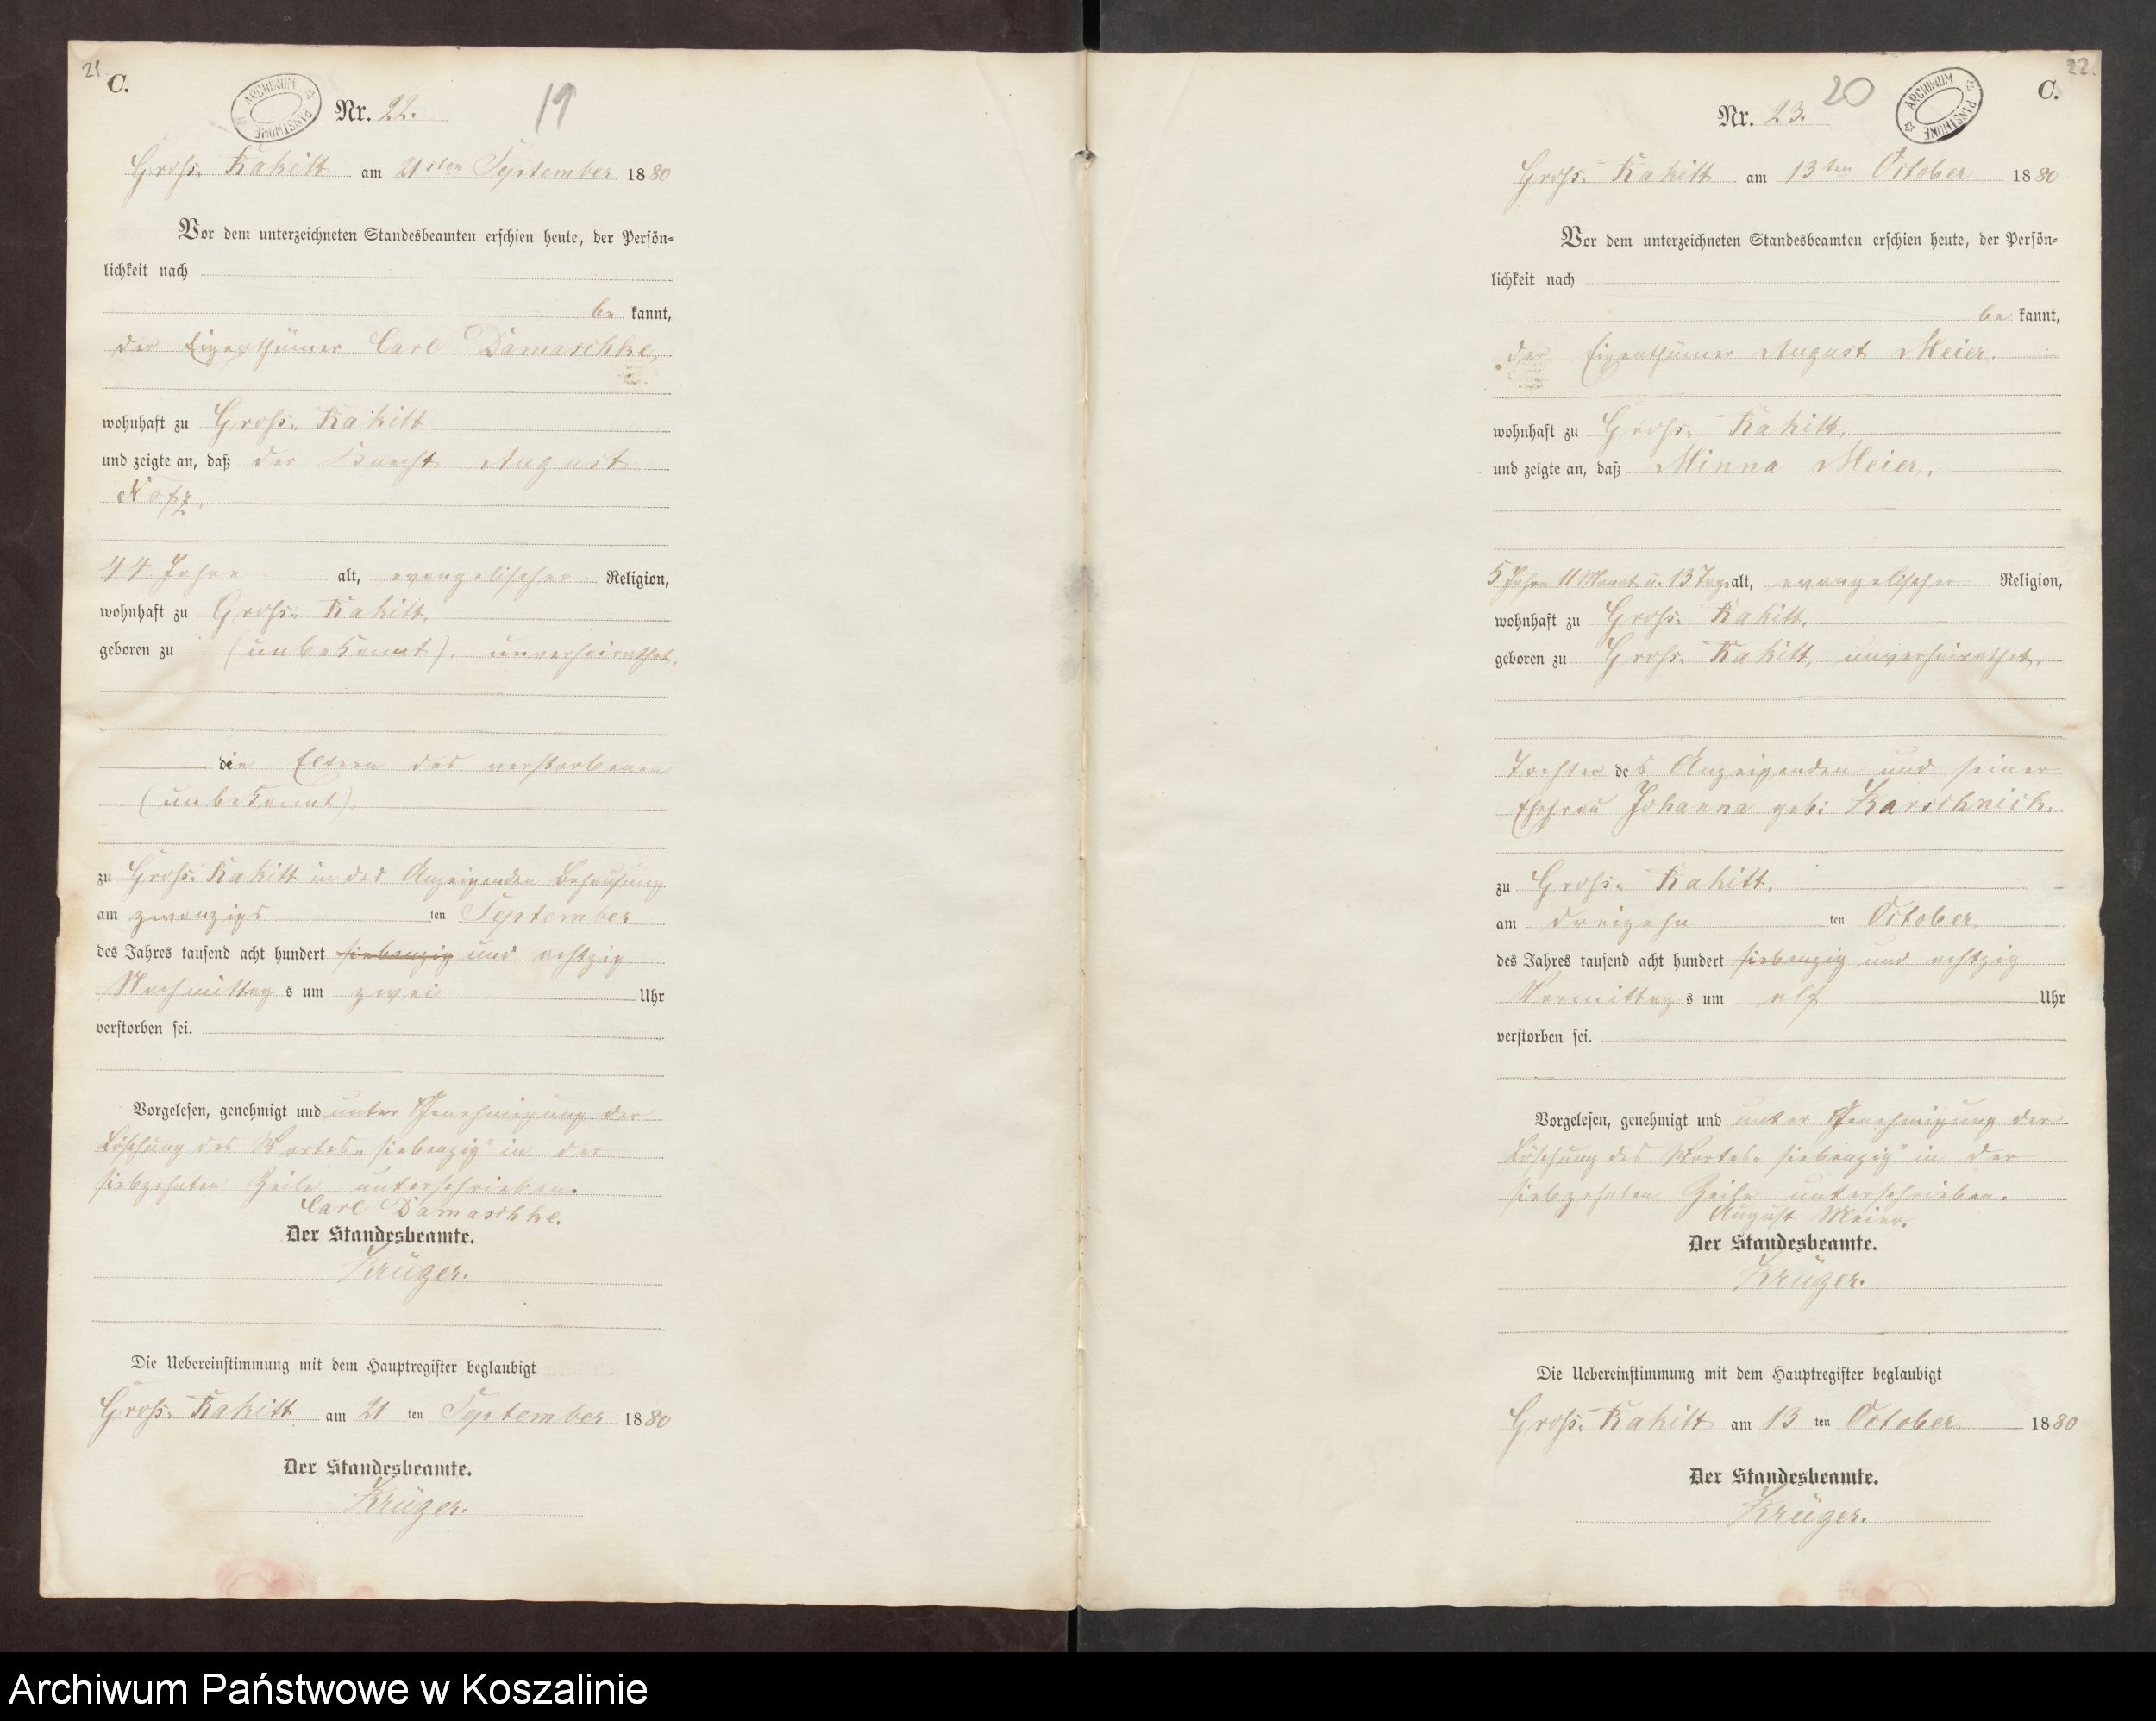 21.
C.
ARCHIWUM PAŃSTWOWE
Nr. 22.
19
Groß-Rakitt am 21sten September 1880
Vor dem unterzeichneten Standesbeamten erschien heute, der Persön-
lichkeit nach
be kannt,
der Eigenthümer Carl Damaschke,
wohnhaft zu Groß-Rakitt
und zeigte an, daß der Knecht August
44 Jahre alt, evangelischer Religion,
wohnhaft zu Groß-Rakitt,
geboren zu (unbekannt), unverheirathet,
die Eltern des verstorbenen
(unbekannt),
zu Groß-Rakitt in des Anzeigenden Behausung
am zwanzigs ten September
des Jahres tausend acht hundert siebenzig und achtzig
Nachmittag s um zwei Uhr
verstorben sei.
Vorgelesen, genehmigt und unter Genehmigung der
Löschung des Wortes „siebenzig" in der
siebzehnten Zeile unterschrieben.
Carl Damaschke.
Der Standesbeamte.
Krüger.
Die Uebereinstimmung mit dem Hauptregister beglaubigt
Groß-Rakitt am 21 ten September 1880
Der Standesbeamte.
Krüger.
22.
C.
ARCHIWUM PAŃSTWOWE
20
Nr. 23.
Groß-Rakitt am 13ten October 1880
Vor dem unterzeichneten Standesbeamten erschien heute, der Persön-
lichkeit nach
be kannt,
der Eigenthümer August Meier,
wohnhaft zu Groß-Rakitt,
und zeigte an, daß Minna Meier,
5 Jahre 11 Monat u. 13 Tage alt, evangelischer Religion,
wohnhaft zu Groß-Rakitt,
geboren zu Groß-Rakitt, unverheirathet,
Tochter des Anzeigenden und seiner
Ehefrau Johanna geb: Karschnick.
zu Groß-Rakitt,
am dreizehn ten October
des Jahres tausend acht hundert siebenzig und achtzig
Vormittag s um elf Uhr
verstorben sei.
Vorgelesen, genehmigt und unter Genehmigung der
Löschung des Wortes „siebenzig" in der
siebzehnten Zeile unterschrieben.
August Meier.
Der Standesbeamte.
Krüger.
Die Uebereinstimmung mit dem Hauptregister beglaubigt
Groß-Rakitt am 13 ten October 1880
Der Standesbeamte.
Krüger.
Archiwum Państwowe w Koszalinie